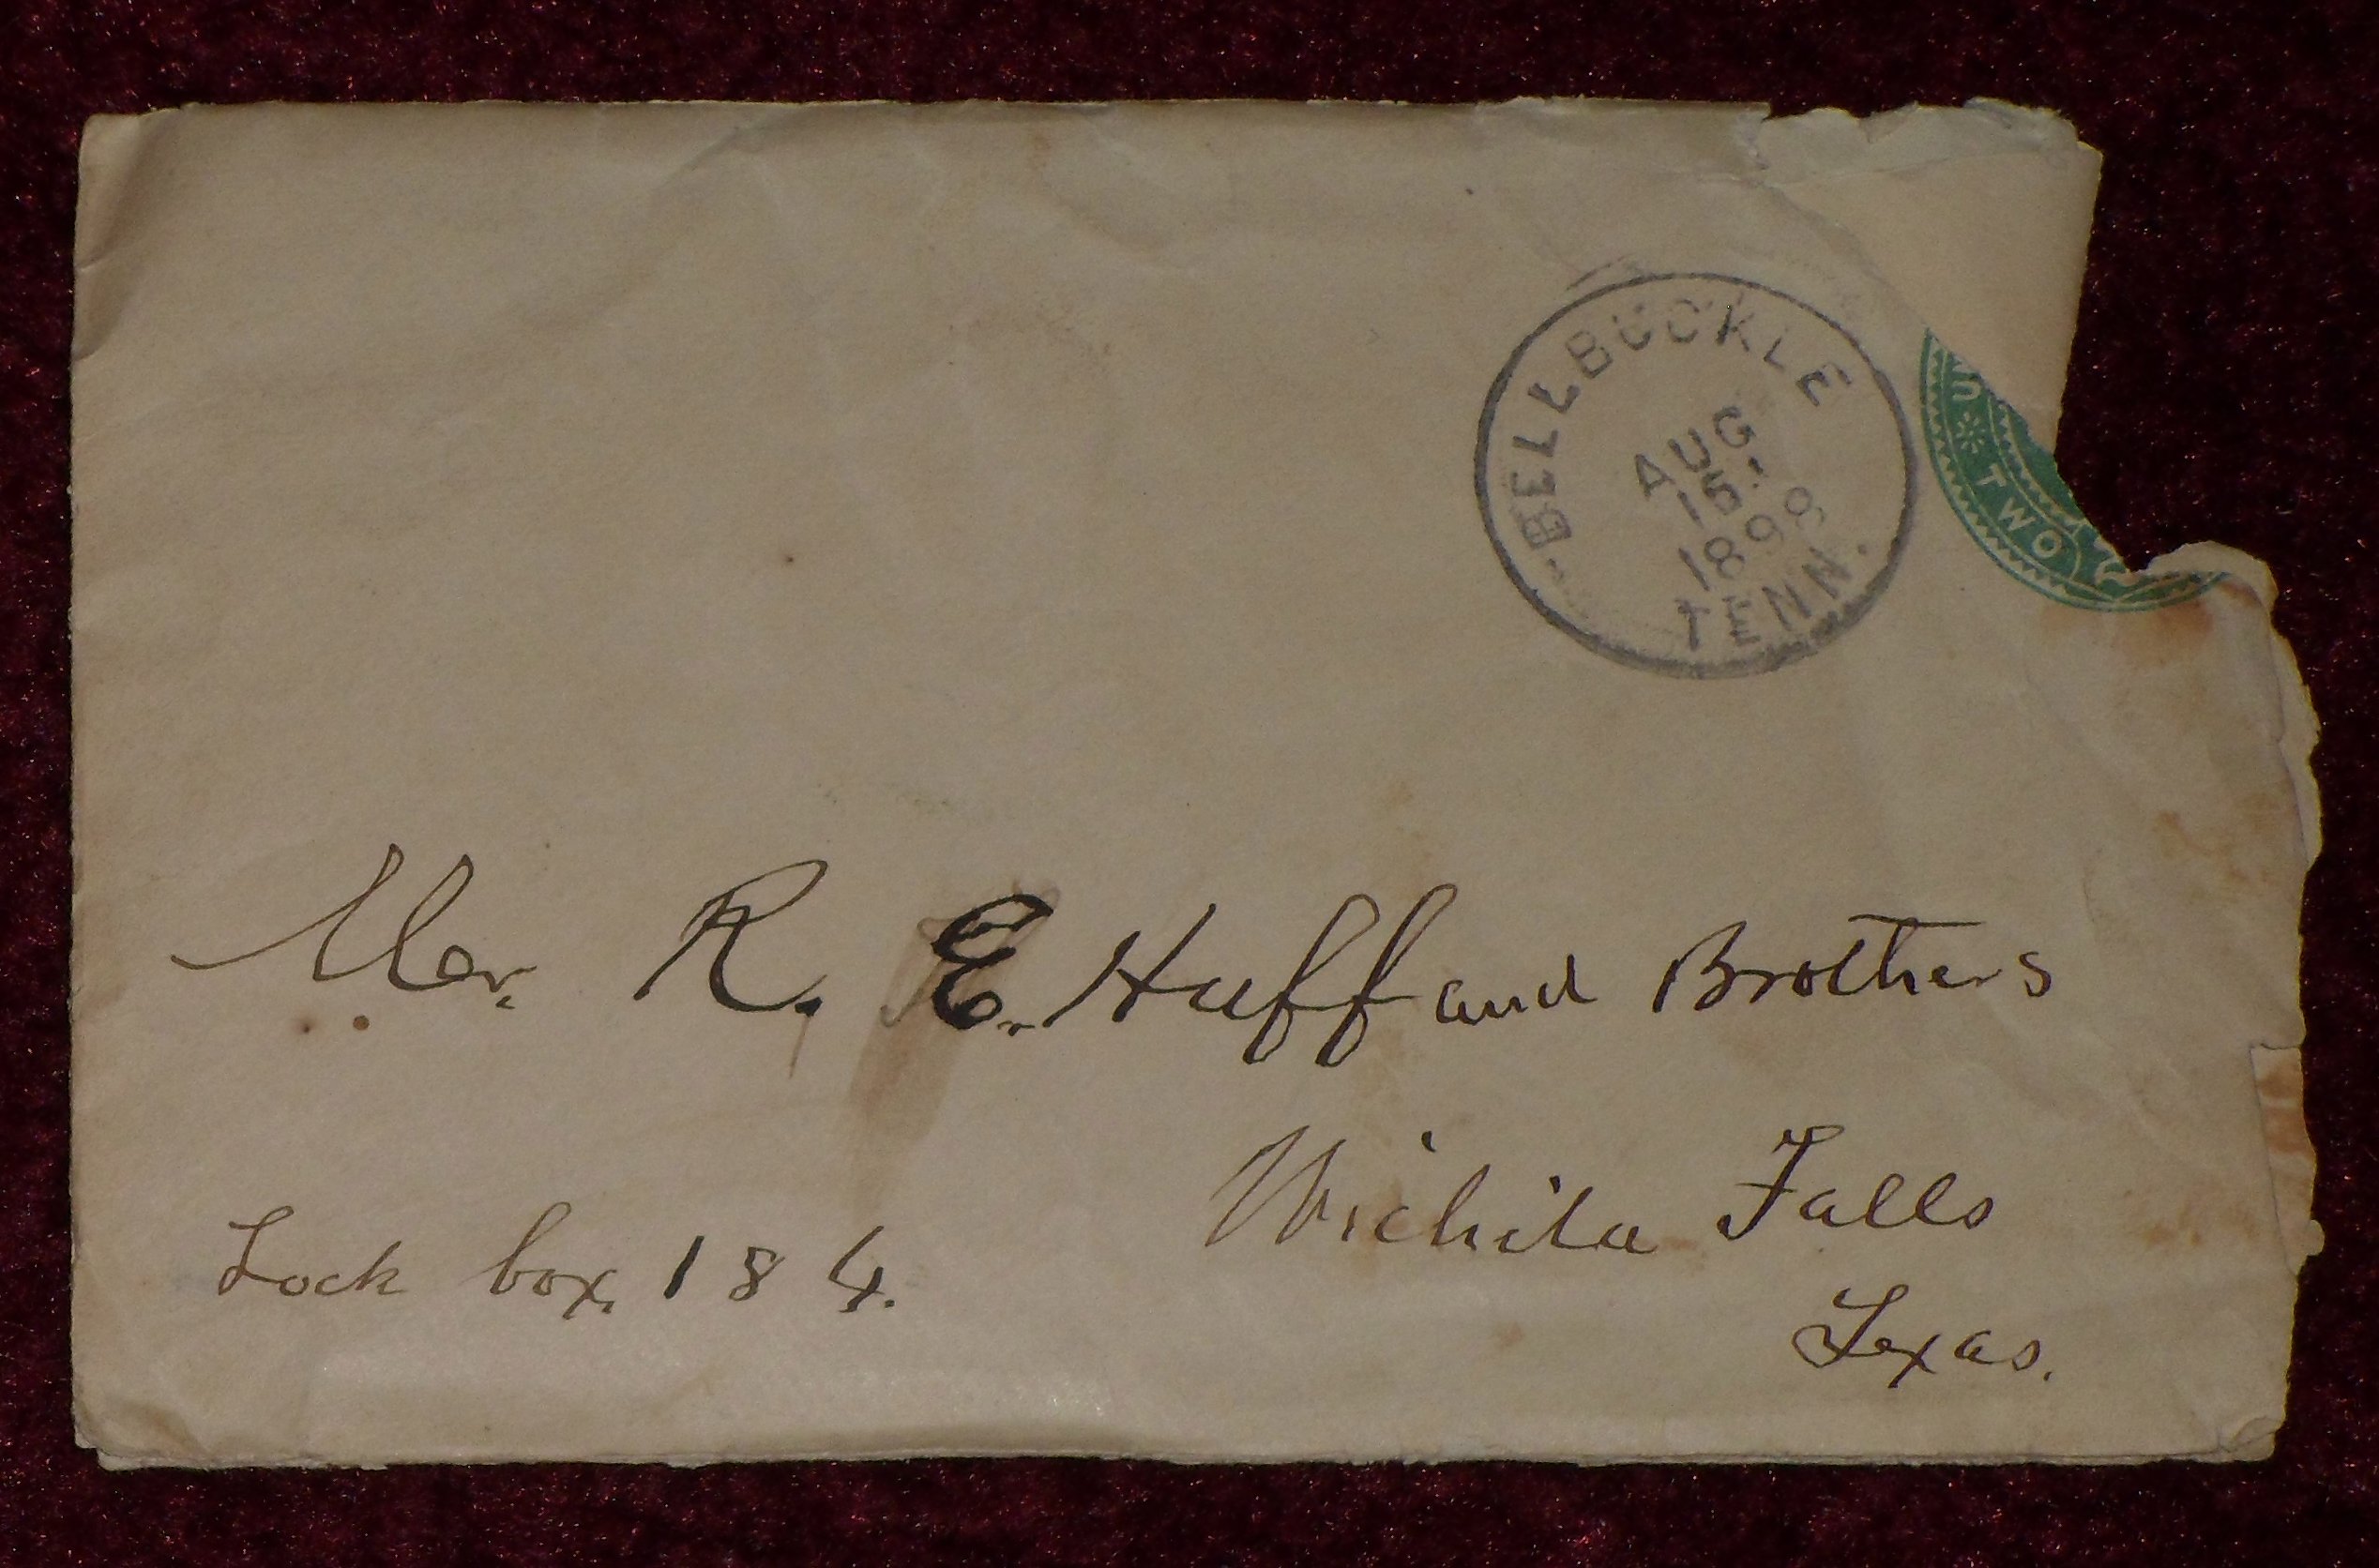 BELLBUCKLE
AUG
15
1898
TENN.
U * TWO
Mr. R. E. Huff and Brothers
Wichita Falls
Lock box, 184.
Texas.